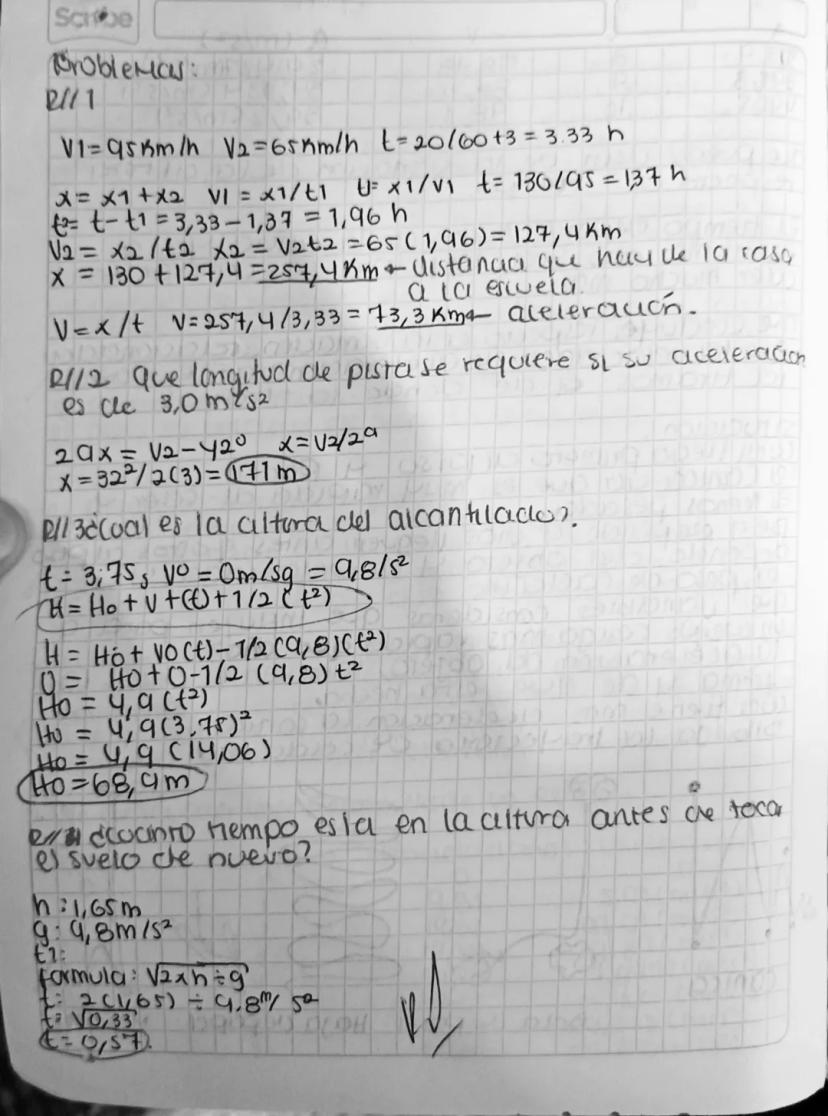 Scribe
Problemas:
R// 1
V1=95Km/h V2=65Km/h t=20/60+3=3.33 h
x= x1+x2 V1=x1/t1 t1= x1/v1 t= 130/95=1,37 h
t2= t-t1=3,33-1,37=1,96 h
V2= x2/t2 x2= V2t2=65(1,96)=127,4Km
x = 130+127,4=257,4Km← distancia que hay de la casa
a la escuela.
V=x/t V=257,4/3,33= 73,3 Km← aceleración.
R//2 que longitud de pista se requiere si su aceleración
es de 3,0 m/s2
2ax= V2-V20 x=V2/2a
x=32²/2(3)=171m
R//3¿cual es la altura del alcantilado?.
t= 3,75s V0=0m/sg=9,8/s²
H=Ho+V+(t)+1/2(t²)
H= Ho+VO(t)-1/2(9,8)(t²)
0= Ho+0-1/2 (9,8)t²
Ho=4,9(t²)
Ho=4,9(3,75)²
Ho=4,9(14,06)
Ho=68,9m
R//4 ¿cuanto tiempo esta en la altura antes de toca
el suelo de nuevo?
h:1,65m
g:9,8m/s²
t1:
formula: √2xh÷g
t: 2(1,65) ÷ 9.8m/s²
t=√0,33
t=0,57.